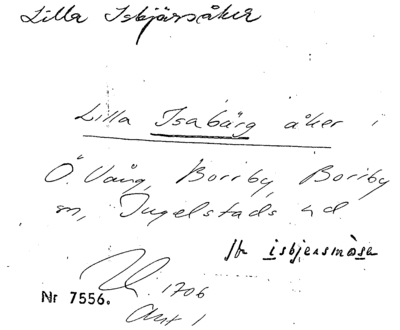 Lilla Isbjärsåker
Lilla Isabärg åker i
Ö. Vång, Borrby, Borrby
sn, Ingelstads hd.
jfr isbjersmåse
1706
Nr 7556.
Akt 1